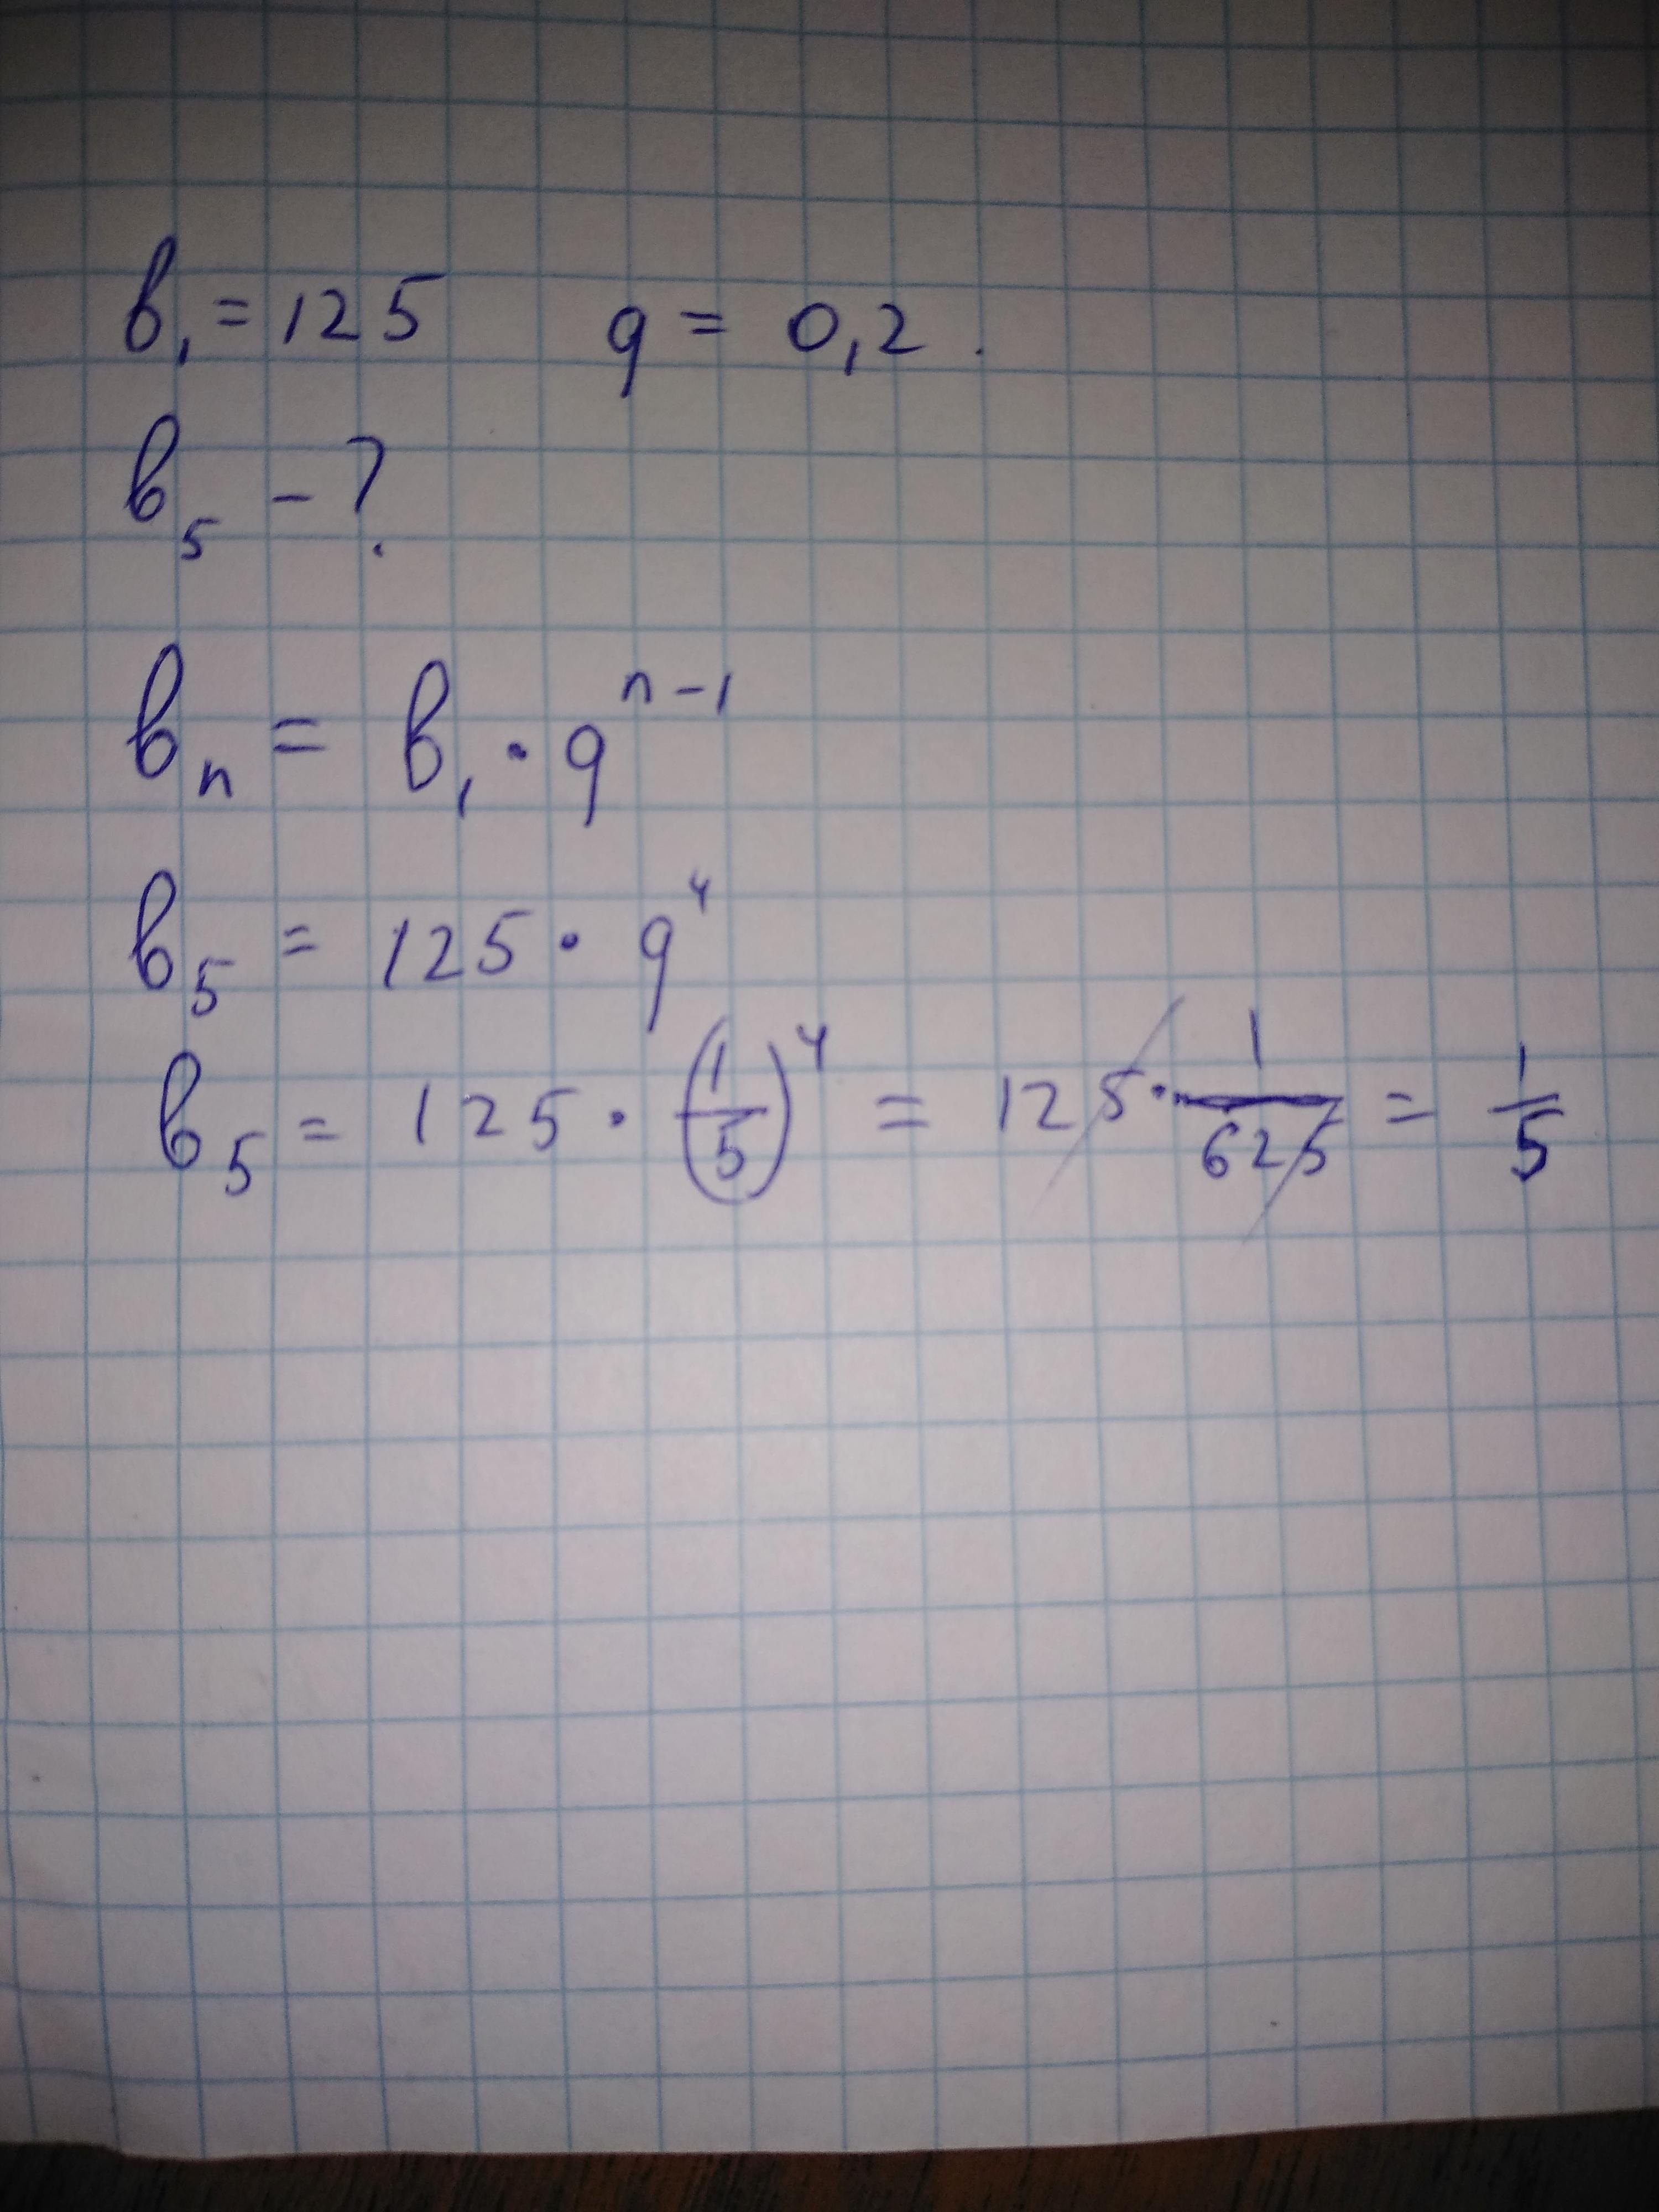 в₁ = 125 q = 0,2.
в₅ - ?
вₙ = в₁ · qⁿ⁻¹
в₅ = 125 · q⁴
в₅ = 125 · (1/5)⁴ = 125 · 1/625 = 1/5